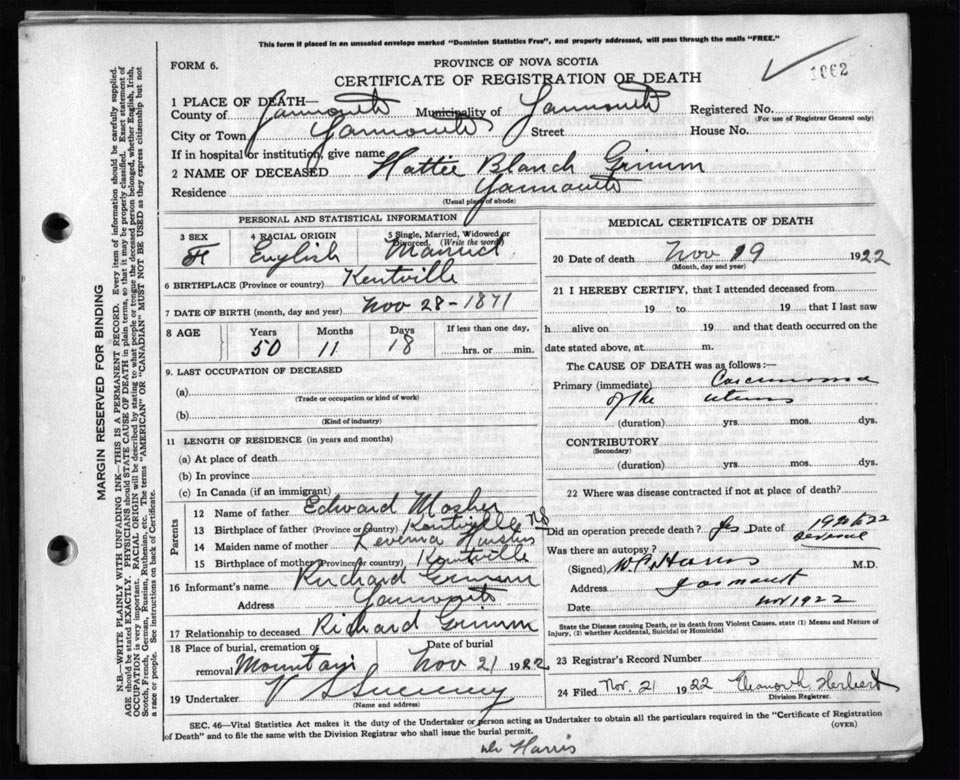 This form if placed in an unsealed envelope marked "Dominion Statistics Free", and property addressed, will pass through the mails "FREE."
FORM 6.
PROVINCE OF NOVA SCOTIA
1062
CERTIFICATE OF REGISTRATION OF DEATH
1 PLACE OF DEATH—
County of Yarmouth Municipality of Yarmouth Registered No.
(For use of Registrar General only)
City or Town Yarmouth Street House No.
If in hospital or institution, give name
2 NAME OF DECEASED Hattie Blanch Grimm
Residence Yarmouth
(Usual place of abode)
PERSONAL AND STATISTICAL INFORMATION
3 SEX
F
4 RACIAL ORIGIN
English
5 Single, Married, Widowed or Divorced. (Write the word)
Married
6 BIRTHPLACE (Province or country) Kentville
7 DATE OF BIRTH (month, day and year) Nov 28-1871
8 AGE Years Months Days If less than one day,
50 11 18 hrs. or min.
9. LAST OCCUPATION OF DECEASED
(a)
(Trade or occupation or kind of work)
(b)
(Kind of industry)
11 LENGTH OF RESIDENCE (in years and months)
(a) At place of death
(b) In province
(c) In Canada (if an immigrant)
Parents
12 Name of father Edward Mosher
13 Birthplace of father (Province or country) Kentville NS
14 Maiden name of mother Levenia
15 Birthplace of mother (Province or country) Kentville
16 Informant's name Richard Grimm
Address Yarmouth
17 Relationship to deceased Richard Grimm
18 Place of burial, cremation or removal Date of burial
Nov 21 1922
19 Undertaker V S Sweeny
(Name and address)
MEDICAL CERTIFICATE OF DEATH
20 Date of death Nov 19 1922
(Month, day and year)
21 I HEREBY CERTIFY, that I attended deceased from
19 to 19 that I last saw
h alive on 19 and that death occurred on the
date stated above, at m.
The CAUSE OF DEATH was as follows:—
Primary (immediate) Carcinoma
of the uterus
(duration) yrs. mos. dys.
CONTRIBUTORY
(Secondary)
(duration) yrs. mos. dys.
22 Where was disease contracted if not at place of death?
Did an operation precede death? Yes Date of 1921/22
several
Was there an autopsy?
(Signed) W.C. Harris M.D.
Address Yarmouth
Date Nov 1922
State the Disease causing Death, or in death from Violent Causes, state (1) Means and Nature of Injury, (2) whether Accidental, Suicidal or Homicidal
23 Registrar's Record Number
24 Filed Nov. 21 1922 Eleanor L. Herbert
Division Registrar.
SEC. 46—Vital Statistics Act makes it the duty of the Undertaker or person acting as Undertaker to obtain all the particulars required in the "Certificate of Registration
of Death" and to file the same with the Division Registrar who shall issue the burial permit.
(OVER)
Harris
MARGIN RESERVED FOR BINDING
N.B.—WRITE PLAINLY WITH UNFADING INK—THIS IS A PERMANENT RECORD. Every item of information should be carefully supplied.
AGE should be stated EXACTLY. PHYSICIANS should STATE CAUSE OF DEATH in plain terms, so that it may be properly classified. Exact statement of
OCCUPATION is very important. RACIAL ORIGIN will be described by stating to what people or tongue the deceased person belonged, whether English, Irish,
Scotch, French, German, Russian, Ruthenian, etc. The terms "AMERICAN" OR "CANADIAN" MUST NOT BE USED as they express citizenship but not
a race or people. See instructions on back of Certificate.